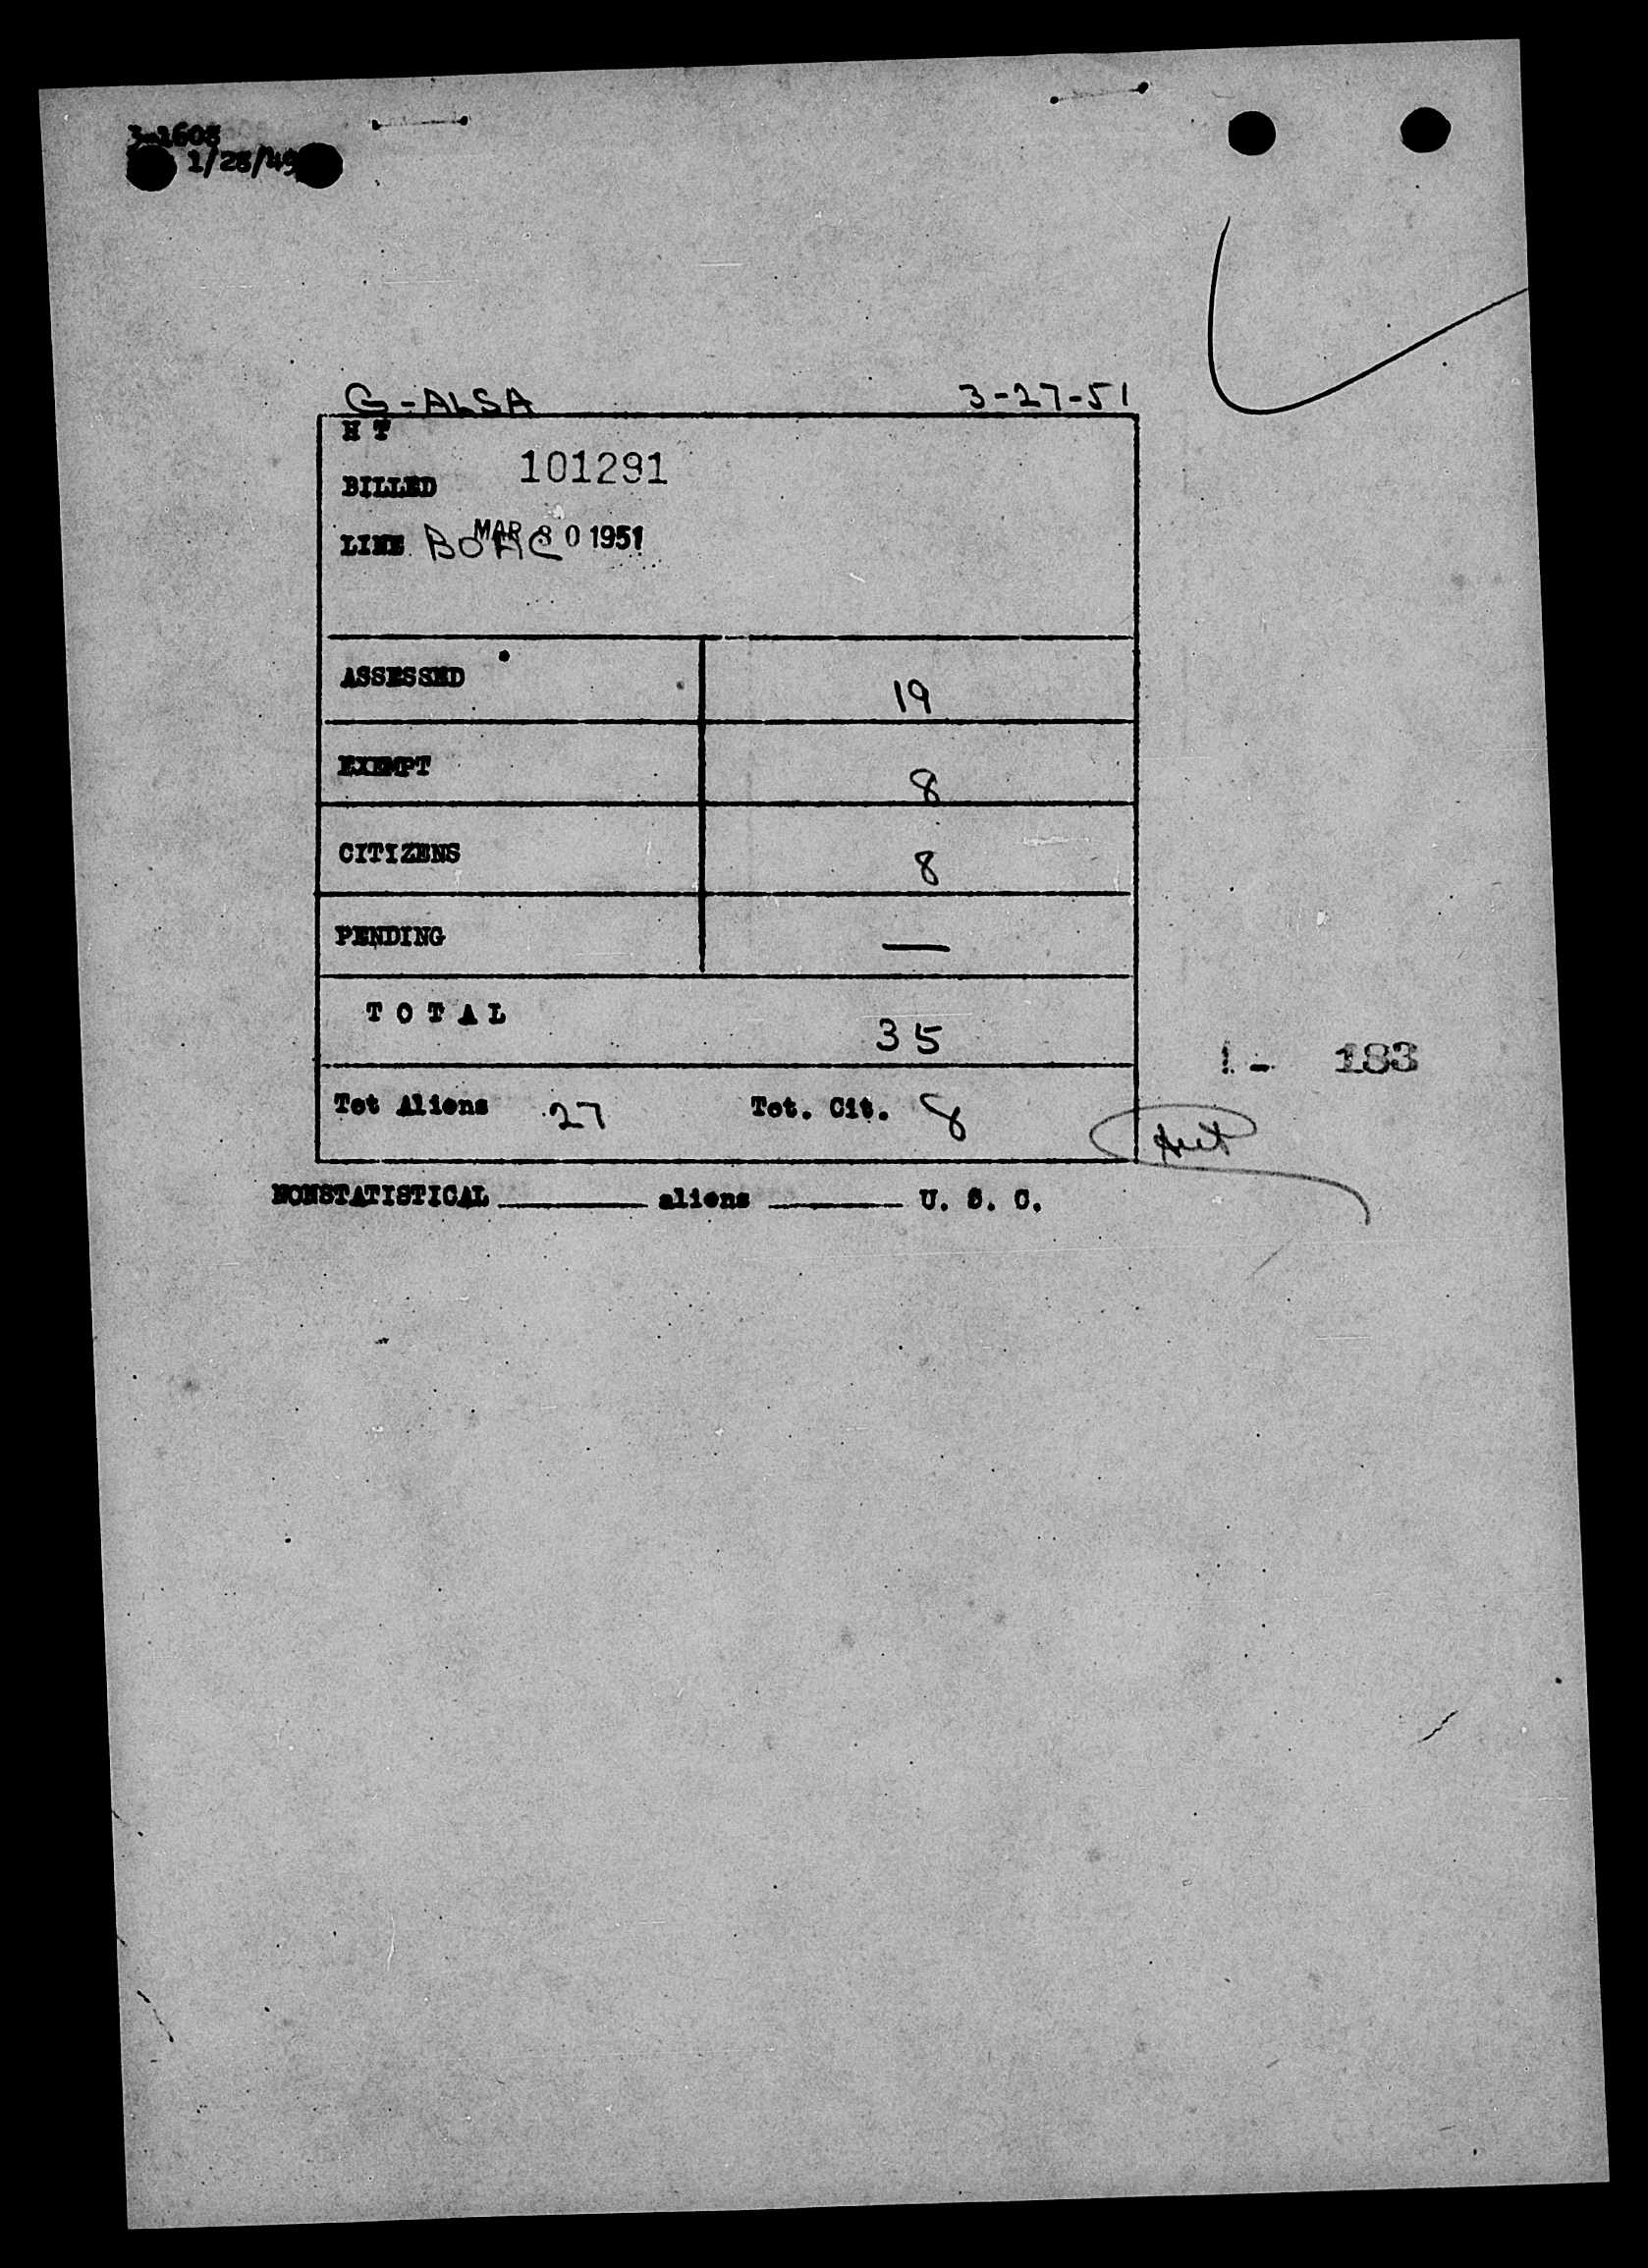 3-1608
1/28/49
G-ALSA 3-27-51
H T
BILLED 101291
LINE BOAC MAR 30 1951
ASSESSED 19
EXEMPT 8
CITIZENS 8
PENDING —
T O T A L 35
1 - 183
Tot Aliens 27 Tot. Cit. 8
NONSTATISTICAL ________ aliens ________ U. S. C.